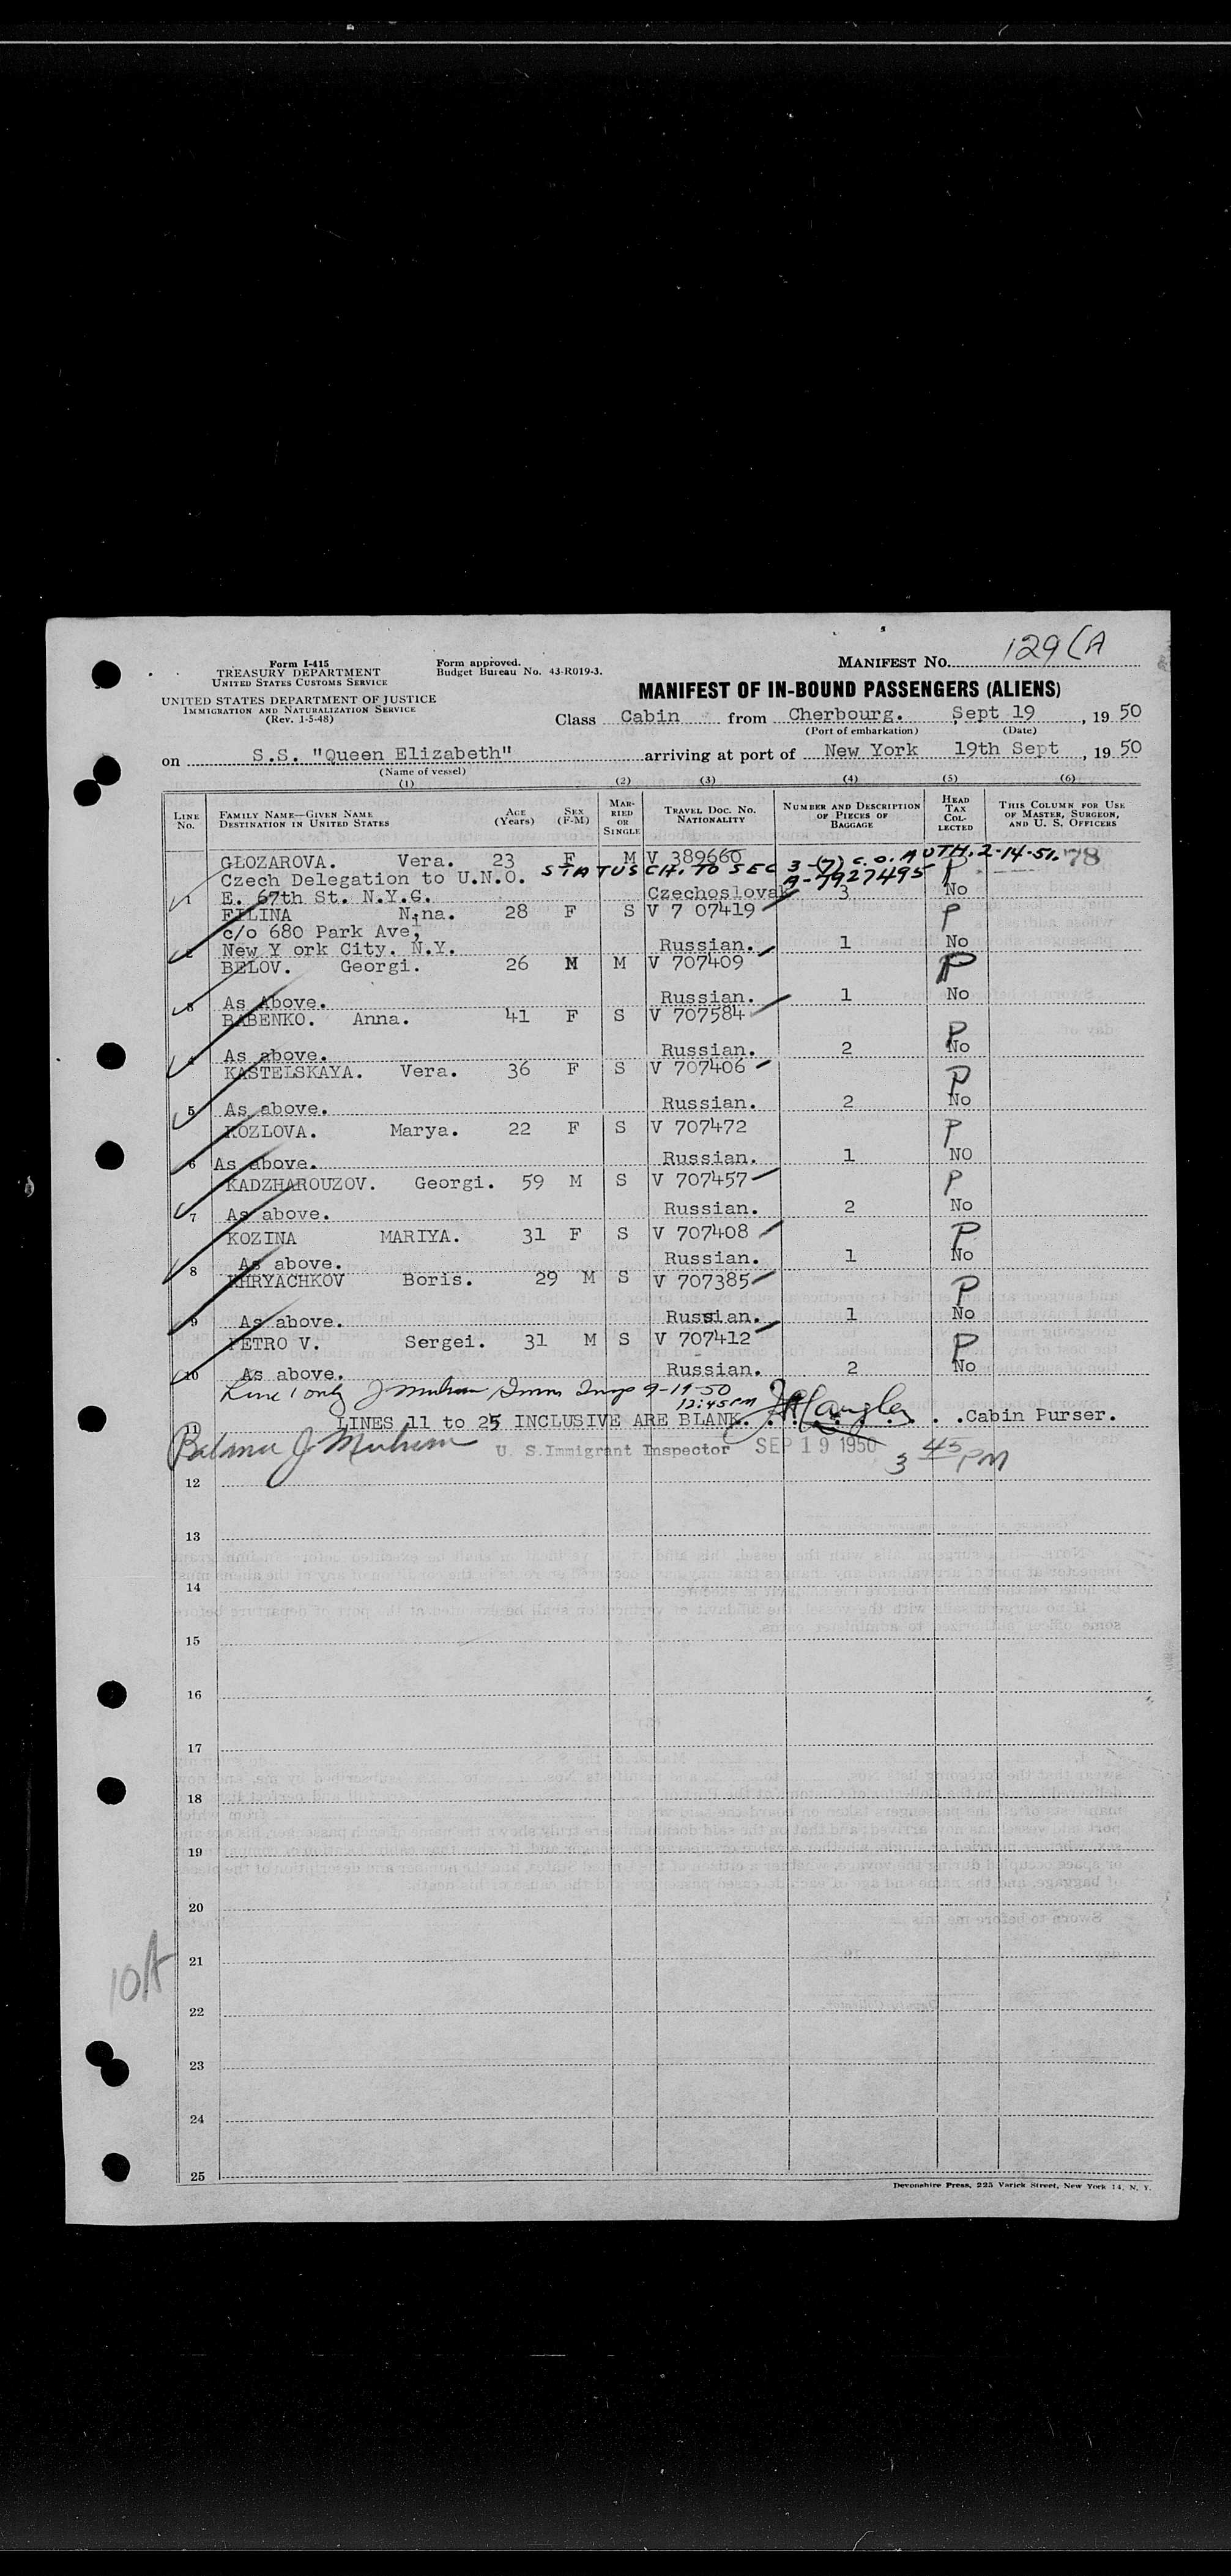 129 CA
Form I-415
TREASURY DEPARTMENT
UNITED STATES CUSTOMS SERVICE
Form approved.
Budget Bureau No. 43-R019-3.
MANIFEST NO.
UNITED STATES DEPARTMENT OF JUSTICE
IMMIGRATION AND NATURALIZATION SERVICE
(Rev. 1-5-48)
MANIFEST OF IN-BOUND PASSENGERS (ALIENS)
Class Cabin from Cherbourg. , Sept 19 , 19 50
(Port of embarkation) (Date)
on S.S. "Queen Elizabeth" arriving at port of New York 19th Sept , 19 50
(Name of vessel)
(1) (2) (3) (4) (5) (6)
LINE NO. FAMILY NAME—GIVEN NAME DESTINATION IN UNITED STATES AGE (Years) SEX (F-M) MARRIED OR SINGLE TRAVEL DOC. NO. NATIONALITY NUMBER AND DESCRIPTION OF PIECES OF BAGGAGE HEAD TAX COLLECTED THIS COLUMN FOR USE OF MASTER, SURGEON, AND U. S. OFFICERS
GLOZAROVA. Vera. 23 F M V 389660 78
STATUS CH. TO SEC 3-(7) C.O. AUTH. 2-14-51.
Czech Delegation to U.N.O. A-7927495 P
1 E. 67th St. N.Y.G. Czechoslovak 3 No
FILINA Nina. 28 F S V 7 07419 P
c/o 680 Park Ave,
2 New Y ork City. N.Y. Russian. 1 No
BELOV. Georgi. 26 M M V 707409 P
3 As Above. Russian. 1 No
BABENKO. Anna. 41 F S V 707584 P
4 As above. Russian. 2 No
KASTELSKAYA. Vera. 36 F S V 707406 P
5 As above. Russian. 2 No
KOZLOVA. Marya. 22 F S V 707472 P
6 As above. Russian. 1 NO
KADZHAROUZOV. Georgi. 59 M S V 707457 P
7 As above. Russian. 2 No
KOZINA MARIYA. 31 F S V 707408 P
8 As above. Russian. 1 No
KHRYACHKOV Boris. 29 M S V 707385 P
9 As above. Russian. 1 No
PETRO V. Sergei. 31 M S V 707412 P
10 As above. Russian. 2 No
Line 1 only J Imm Insp 9-19-50
12:45 PM
11 LINES 11 to 25 INCLUSIVE ARE BLANK. Cabin Purser.
Balance J U. S. Immigrant Inspector SEP 19 1950 3 45 PM
12
13
14
15
16
17
18
19
20
10A
21
22
23
24
25
Devonshire Press, 225 Varick Street, New York 14, N. Y.